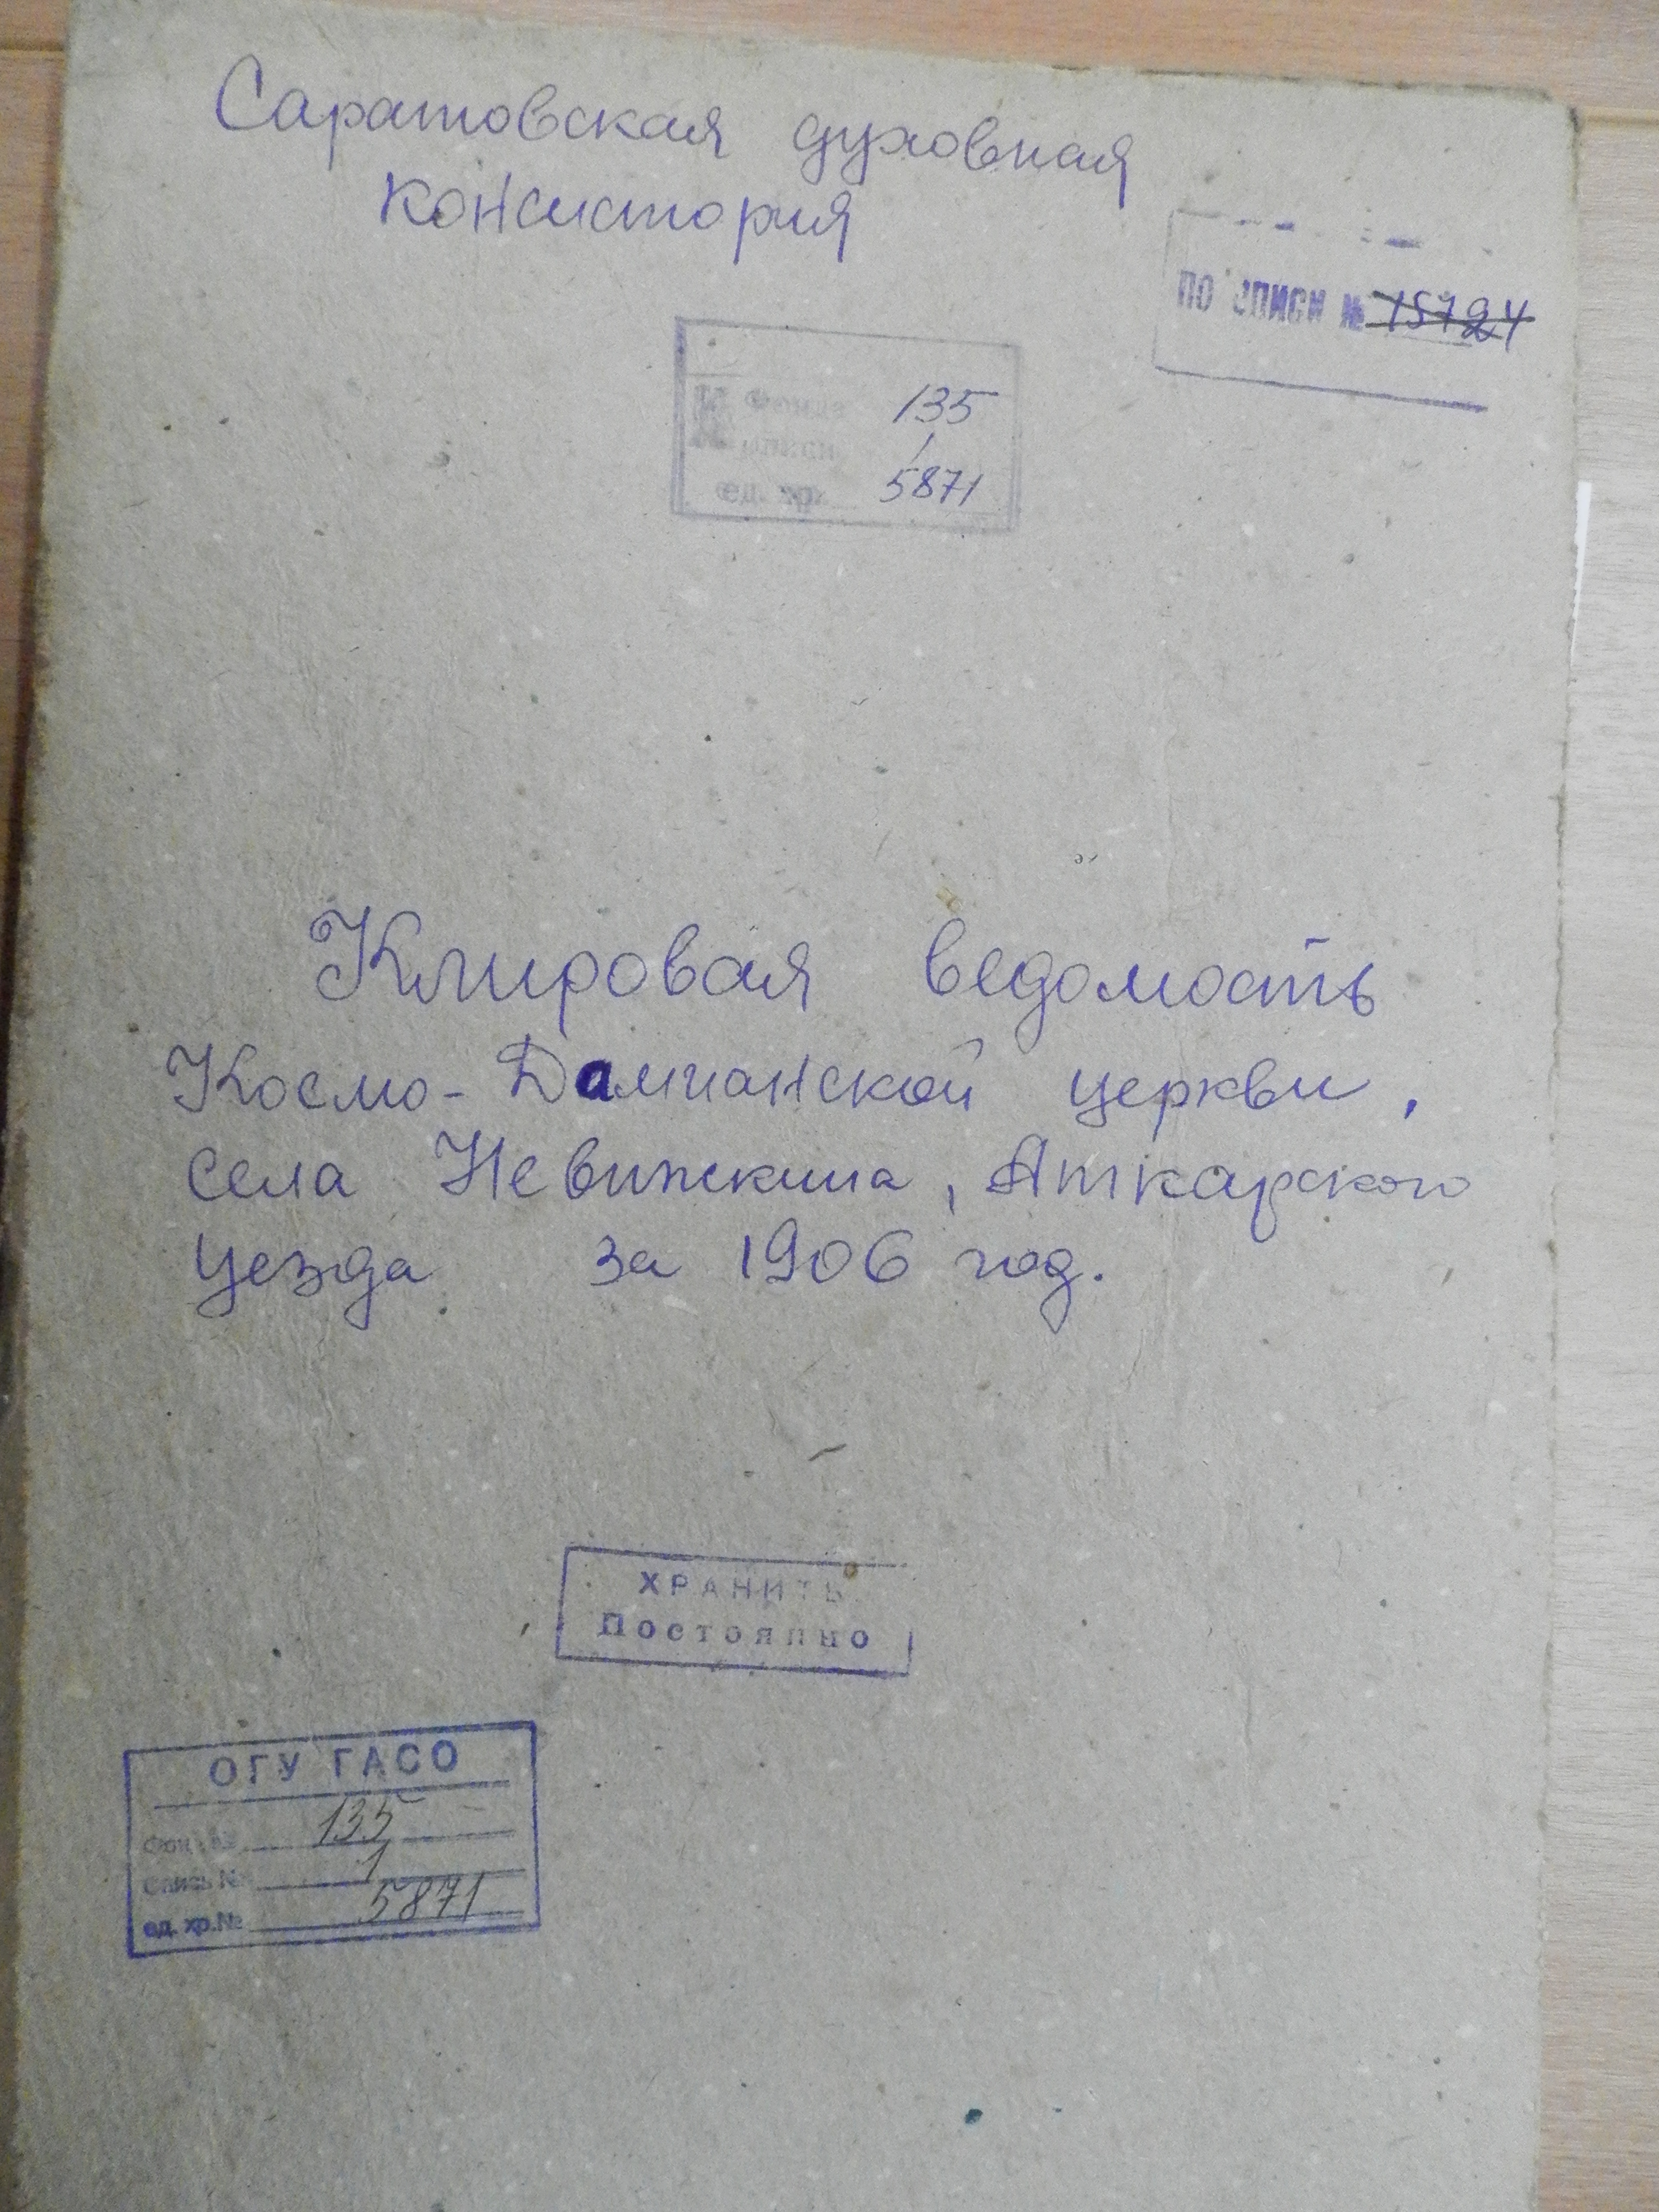 Саратовская духовная
консистория
ПО ОПИСИ № 15724
№ Фонда 135
№ описи 1
ед. хр. 5871
Клировая ведомость
Космо-Дамианской церкви,
села Невижкина, Аткарского
уезда за 1906 год.
ХРАНИТЬ
Постоянно
ОГУ ГАСО
Фонд № 135
Опись № 1
ед. хр.№ 5871